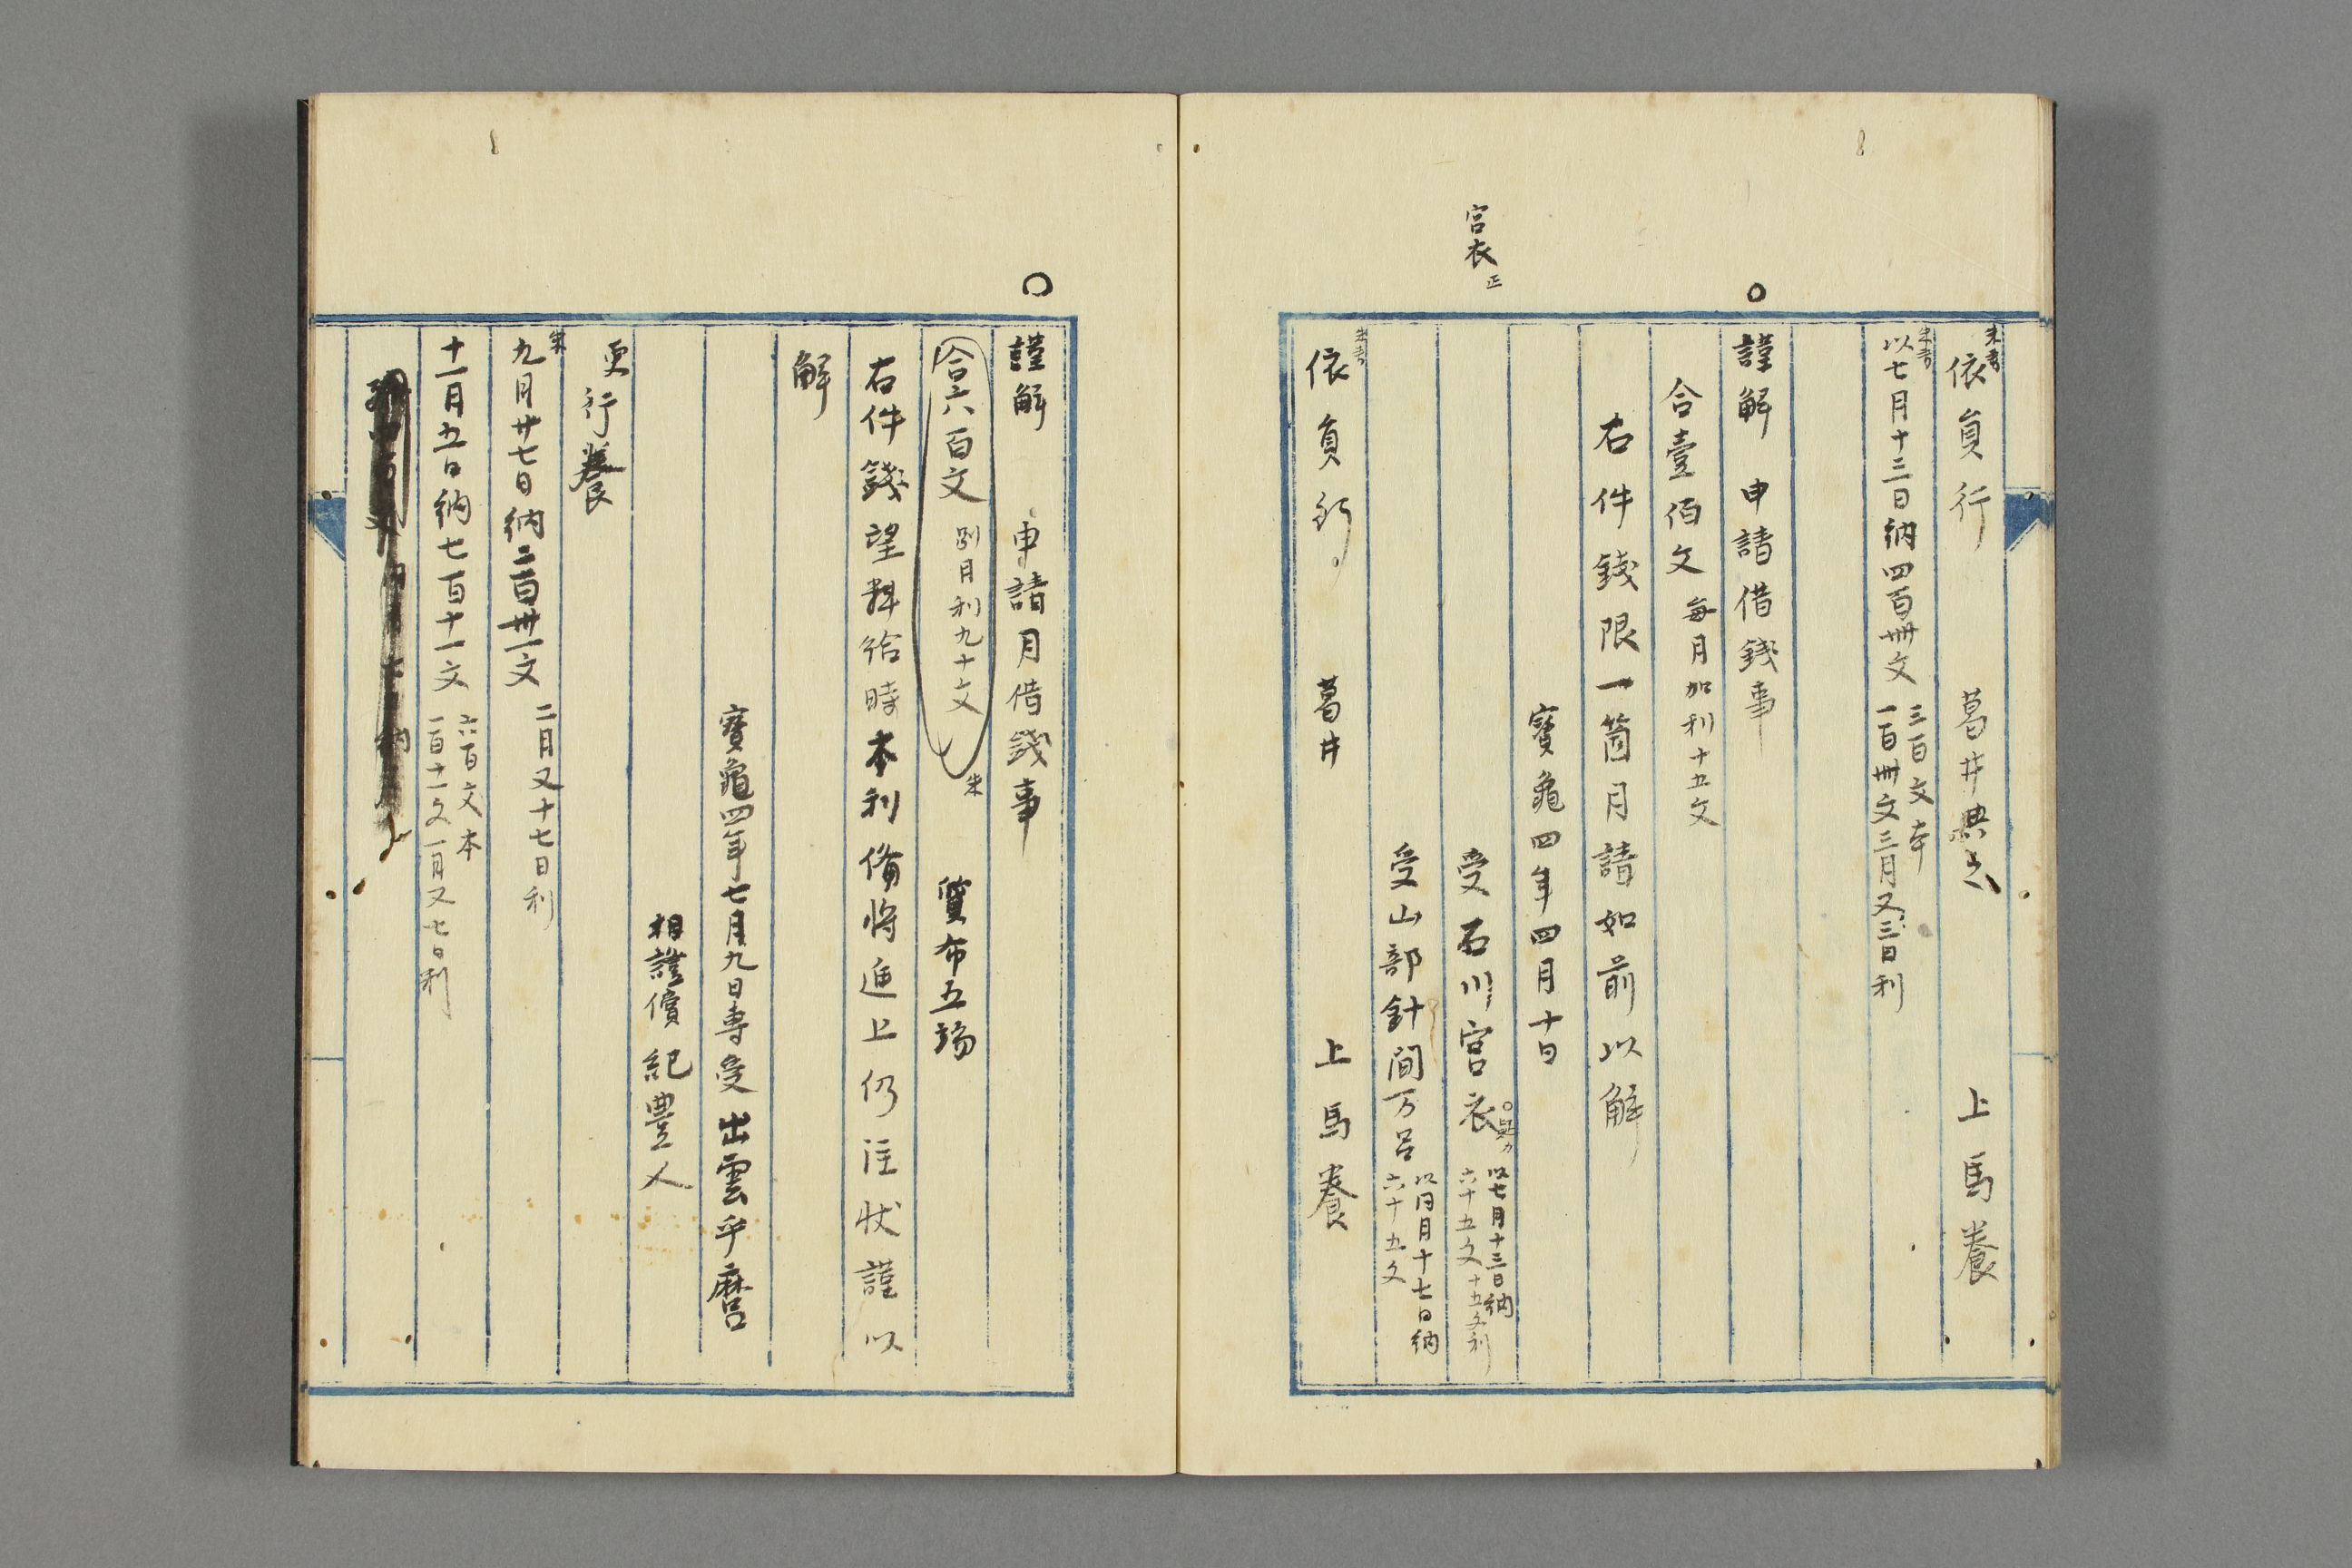 朱書
依員行 葛井典 上馬養
朱書
以七月十三日納四百卌文 三百文本
一百卌文三月又三日利
謹解 申請借錢事
合壹佰文 毎月加利十五文
右件錢限一箇月請如前以解
寳龜四年四月十日
宮衣 正
受石川宮衣 以七月十三日納
六十五文 十五文利
受山部針間万呂 以同月十七日納
六十五文
朱書
依員行 葛井 上馬養
謹解 申請月借錢事
合六百文 別月利九十文 朱 質布五端
右件錢望料給時本利備将進上仍注状謹以
解
寳龜四年七月九日専受 出雲乎麿
相證償 紀豊人
更行養
朱
九月廿七日納二百卌一文 二月又十七日利
十一月五日納七百十一文 六百文本
一百十一文一月又七日利